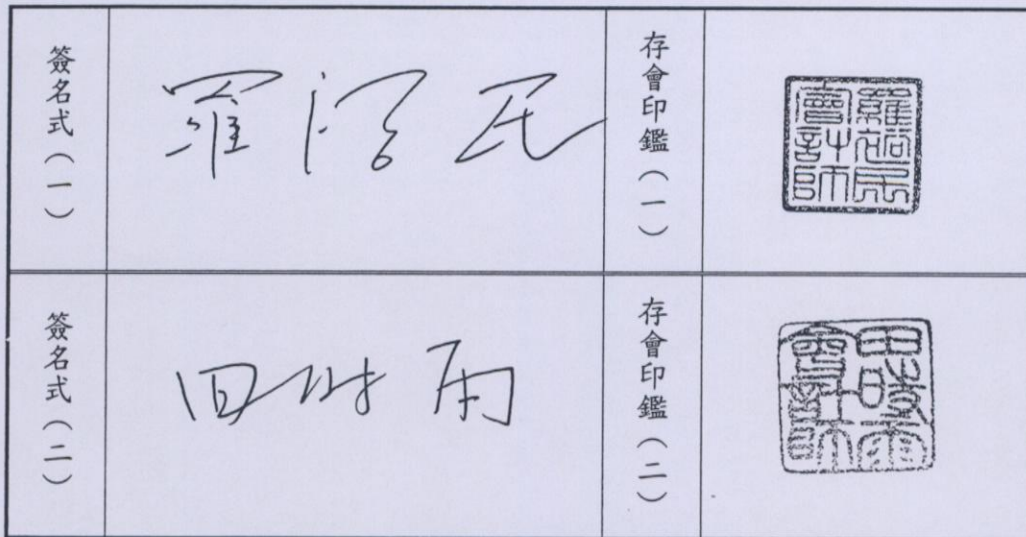 簽名式（一）
羅裕民
存會印鑑（一）
羅裕民
會計師
簽名式（二）
田時雨
存會印鑑（二）
田時雨
會計師